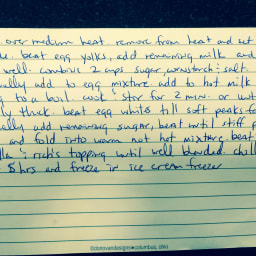 over medium heat remove from heat and set
beat egg yolks, add remaining milk and
well. combine 2 cups sugar, cornstarch & salt.
ually add to egg mixture add to hot milk
g to a boil. cook & stir for 2 min. or unt
ly thick beat egg whites till soft peaks fo
ally add remaining sugar, beat until stiff p
and fold into warm not hot mixture. beat
lla & rich's topping until well blended. chill
5 hrs and freeze in ice cream freezer
©donovandesigns•columbus, ohio